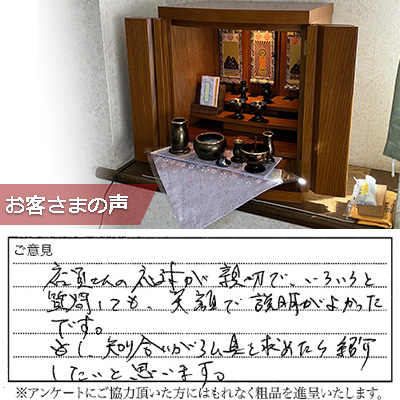 お客さまの声
ご意見
店員さんの応対が親切で、いろいろと
質問しても、笑顔で説明がよかった
です。
もし、知り合いが仏具を求めたら紹介
したいと思います。
※アンケートにご協力頂いた方にはもれなく粗品を進呈いたします。